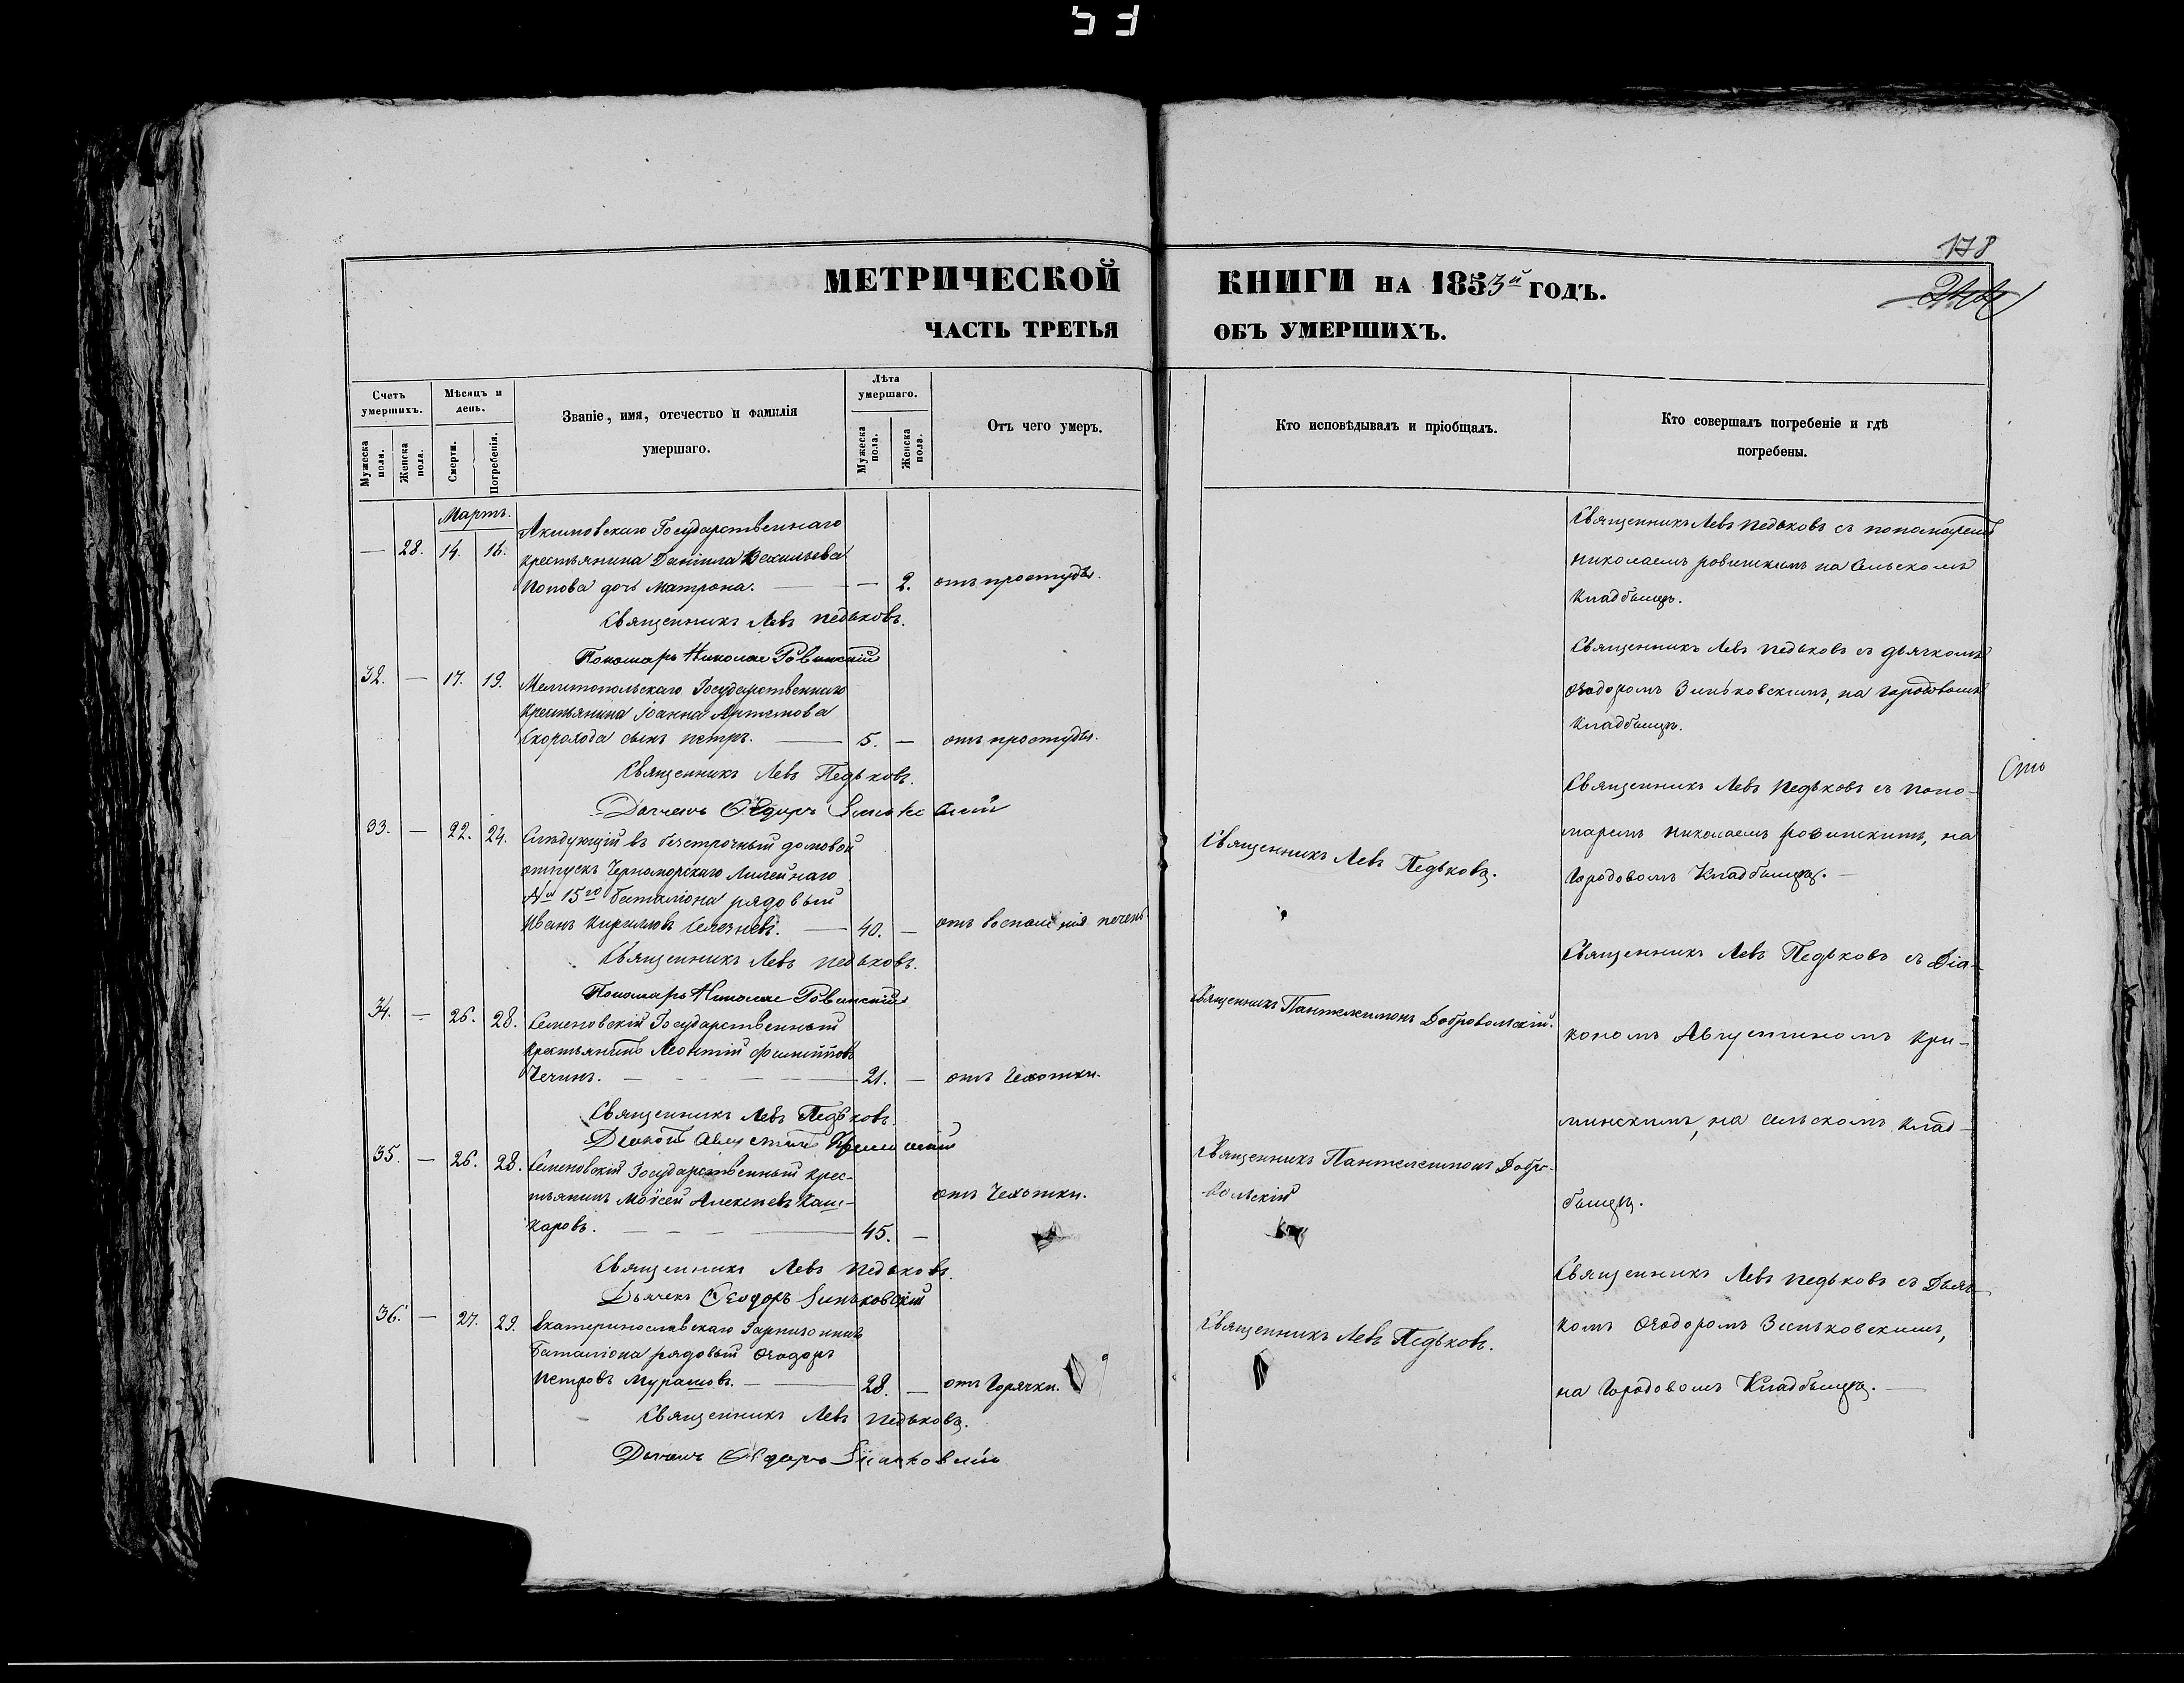 53
178
МЕТРИЧЕСКОЙ КНИГИ НА 1853й ГОДЪ.
ЧАСТЬ ТРЕТЬЯ ОБЪ УМЕРШИХЪ.
Счетъ умершихъ.
Мужеска пола.
Женска пола.
Мѣсяцъ и день.
Смерти.
Погребенія.
Званіе, имя, отечество и фамилія
умершаго.
Лѣта умершаго.
Мужеска пола.
Женска пола.
Отъ чего умеръ.
Кто исповѣдывалъ и пріобщалъ.
Кто совершалъ погребеніе и гдѣ
погребены.
Мартъ.
— 28. 14. 16. Акимовскаго Государственнаго
крестьянина Даніила Васильева
Попова дочь Матрона. — — 2. отъ простуды.
Священникъ Левъ Педьковъ съ пономаремъ
Николаемъ Ровинскимъ на сельскомъ
кладбищѣ.
Священникъ Левъ Педьковъ.
Пономарь Николай Ровинскій
32. — 17. 19. Мелитопольскаго Государственнаго
крестьянина Іоанна Артемова
Скорохода сынъ Петръ. — 5. — отъ простуды.
Священникъ Левъ Педьковъ съ дьячкомъ
Ѳеодоромъ Зиньковскимъ, на городовомъ
кладбищѣ.
Священникъ Левъ Педьковъ.
Дьячекъ Ѳеодоръ
33. — 22. 24. Слѣдующій въ безсрочный домовой
отпускъ Черноморскаго Линейнаго
№ 15го баталіона рядовый
Иванъ Кириловъ Селезневъ. — 40. — отъ воспаленія печени
Священникъ Левъ Педьковъ.
Священникъ Левъ Педьковъ съ поно-
маремъ Николаемъ Ровинскимъ, на
городовомъ кладбищѣ. —
Священникъ Левъ Педьковъ.
Пономарь Николай Ровинскій
34. — 26. 28. Семеновскій Государственный
крестьянинъ Леонтій Филипповъ
Чечинъ. — 21. — отъ чехотки.
Священникъ Пантелеимонъ Добровольскій.
Священникъ Левъ Педьковъ съ Діа-
кономъ Августиномъ Кри-
минскимъ, на сельскомъ клад-
бищѣ.
Священникъ Левъ Педьковъ.
Діаконъ Августинъ
35. — 26. 28. Семеновскій Государственный крес-
тьянинъ Моѵсей Алексѣевъ Каш-
каровъ. — 45. — отъ чехотки.
Священникъ Пантелеимонъ Добро-
вольскій
Священникъ Левъ Педьковъ.
Дьячекъ Ѳеодоръ Зиньковскій
36. — 27. 29. Екатеринославскаго Гарнизоннаго
баталіона рядовый Ѳеодоръ
Петровъ Мурашовъ. — 28. — отъ горячки.
Священникъ Левъ Педьковъ.
Священникъ Левъ Педьковъ съ Дьяч-
комъ Ѳеодоромъ Зиньковскимъ,
на городовомъ кладбищѣ. —
Священникъ Левъ Педьковъ.
Дьячекъ Ѳеодоръ Зиньковскій